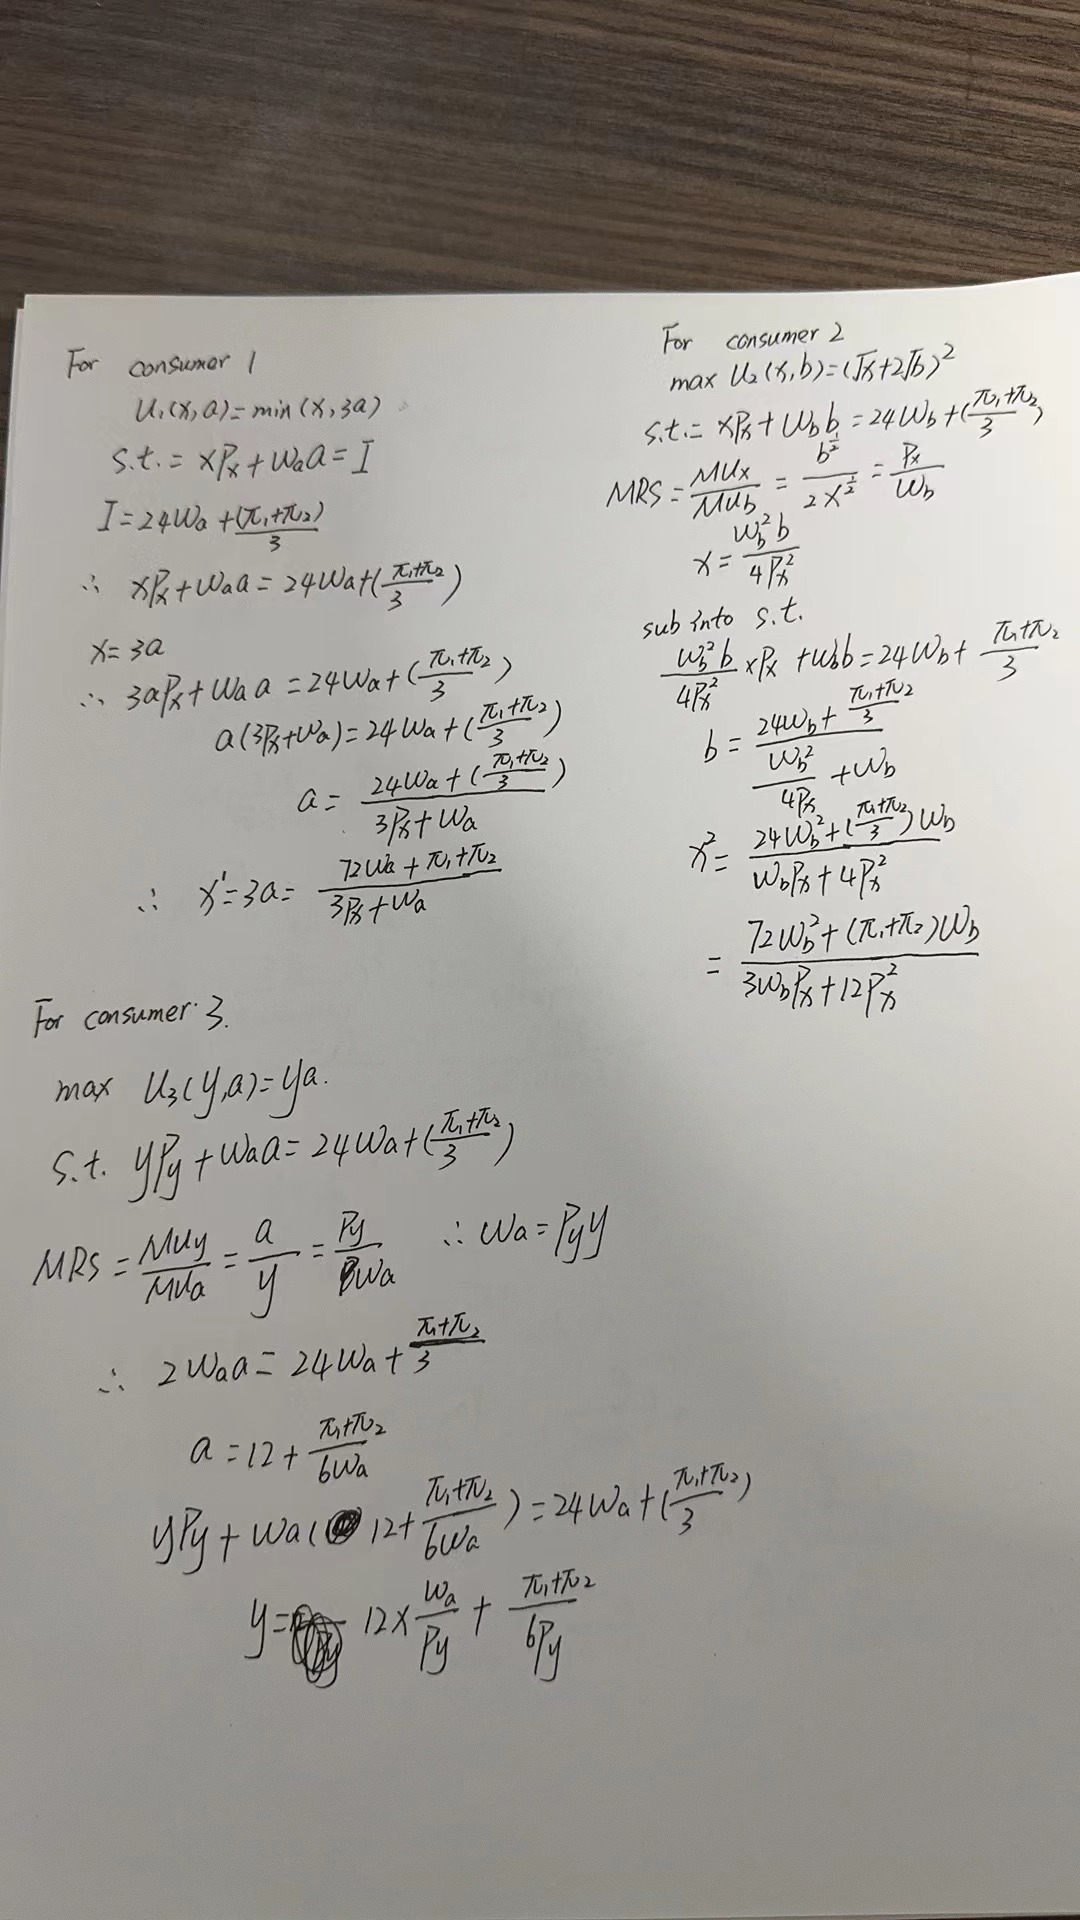 For consumer 1
U₁(x,a)=min(x,3a)
s.t.= xPx+waa=I
I=24wa+(π₁+π₂)/3
∴ xPx+waa=24wa+(π₁+π₂/3)
x=3a
∴ 3aPx+waa=24wa+(π₁+π₂/3)
a(3Px+wa)=24wa+(π₁+π₂/3)
a= 24wa+(π₁+π₂/3) / 3Px+wa
∴ x¹=3a= 72wa+π₁+π₂ / 3Px+wa
For consumer 2
max U₂(x,b)=(√x+2√b)²
s.t.= xPx+wbb=24wb+(π₁+π₂/3)
MRS= MUx/MUb = b^½/2x^½ = Px/wb
x= wb²b/4Px²
sub into s.t.
wb²b/4Px² ×Px +wbb=24wb+ π₁+π₂/3
b= 24wb+ π₁+π₂/3 / wb²/4Px +wb
x²= 24wb²+(π₁+π₂/3)wb / wbPx+4Px²
= 72wb²+(π₁+π₂)wb / 3wbPx+12Px²
For consumer 3.
max U₃(y,a)=ya.
s.t. yPy+waa=24wa+(π₁+π₂/3)
MRS= MUy/MUa = a/y = Py/wa ∴ wa=Pyy
∴ 2waa=24wa+ π₁+π₂/3
a=12+ π₁+π₂/6wa
yPy+wa( 12+ π₁+π₂/6wa )=24wa+(π₁+π₂/3)
y= 12× wa/Py + π₁+π₂/6Py